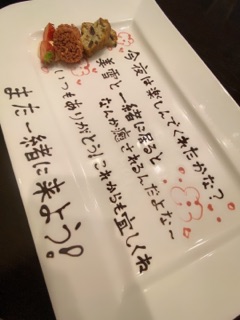 今夜は楽しんでくれたかな?
美雪と一緒に居ると
なんか癒されるんだよな〜
いつもありがとう!これからも宜しくね
また一緒に来よう!